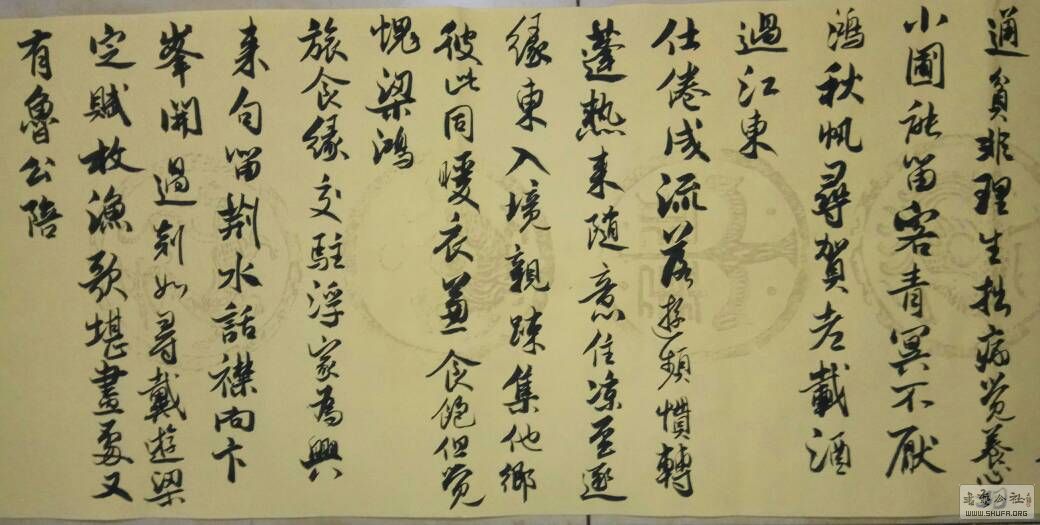 通貧非理生拙病覺養心
小圃能留客青冥不厭
鴻秋帆尋賀老載酒
過江東
仕倦成流落遊頻慣轉
蓬熱來隨意住涼至逐
緣東入境親踈集他鄉
彼此同暖衣兼食飽但覺
愧梁鴻
旅食緣交駐浮家為興
來句留荊水話襟向卞
峯開過剡如尋戴遊梁
定賦枚漁歌堪畫處又
有魯公陪
書法公社
WWW.SHUFA.ORG